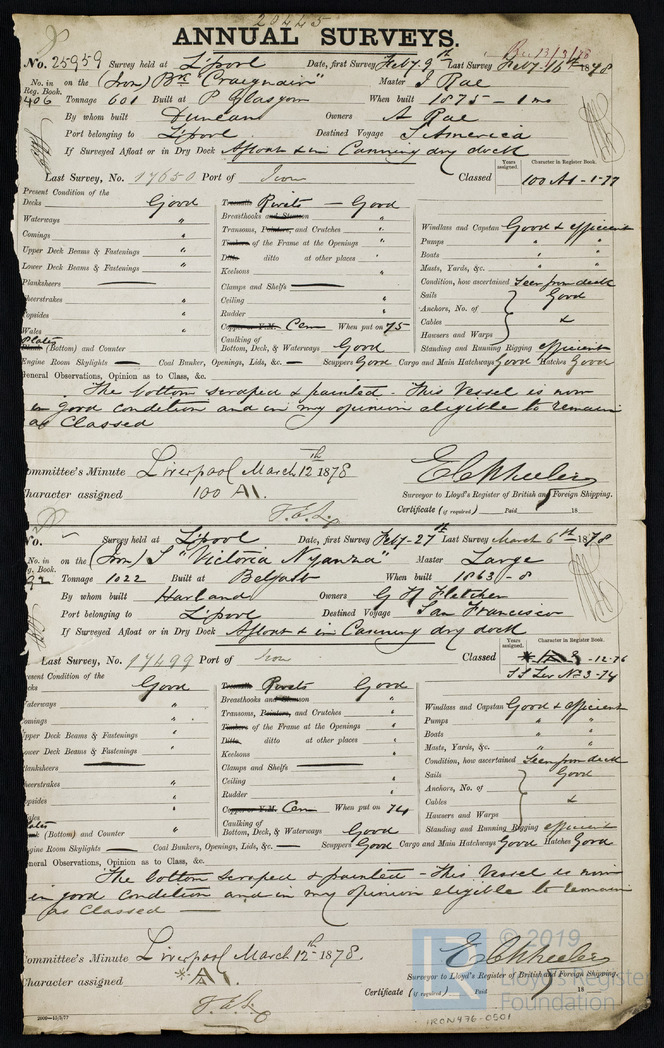 20445
ANNUAL SURVEYS.
Rec 13/3/78
No. 25959 Survey held at L'pool Date, first Survey Feby 9th Last Survey Feby 16th 1878
No. in on the (Iron) Bk "Craigmair" Master J Rae
Reg. Book.
406 Tonnage 601 Built at P Glasgow When built 1875 - 1 mo
By whom built Duncan Owners A Rae
Port belonging to L'pool Destined Voyage S America
If Surveyed Afloat or in Dry Dock Afloat & in Canning dry dock
Years assigned. Character in Register Book.
Last Survey, No. 17650 Port of Iron Classed 100 A1 - 1-77
Present Condition of the
Decks Good Treenails Rivets - Good
Waterways " Breasthooks and Stemson "
Comings " Transoms, Pointers, and Crutches "
Windlass and Capstan Good & efficient
Timbers of the Frame at the Openings "
Pumps " "
Upper Deck Beams & Fastenings " Ditto ditto at other places "
Boats " "
Lower Deck Beams & Fastenings " Keelsons "
Masts, Yards, &c. " "
Planksheers Clamps and Shelfs
Condition, how ascertained Seen from deck
heerstrakes " Ceiling "
Sails Good
opsides " Rudder "
Anchors, No. of
Wales " Copper or Y.M. Cem When put on 75
Cables &
Plates
Plank (Bottom) and Counter " Caulking of Bottom, Deck, & Waterways Good
Hawsers and Warps
Standing and Running Rigging efficient
Engine Room Skylights — Coal Bunker, Openings, Lids, &c. — Scuppers Good Cargo and Main Hatchways Good Hatches Good
General Observations, Opinion as to Class, &c.
The bottom scraped & painted - This Vessel is now
in good condition and in my opinion eligible to remain
as Classed
ommittee's Minute Liverpool March 12th 1878
E C Wheeler
haracter assigned 100 A1.
Surveyor to Lloyd's Register of British and Foreign Shipping.
Certificate (if required) Paid 18
No. — Survey held at L'pool Date, first Survey Feby 27th Last Survey March 6th 1878
No. in on the (Iron) S "Victoria Nyanza" Master Large
g. Book.
92 Tonnage 1022 Built at Belfast When built 1863 - 8
By whom built Harland Owners G H Fletcher
Port belonging to L'pool Destined Voyage San Francisco
If Surveyed Afloat or in Dry Dock Afloat & in Canning dry dock
Years assigned. Character in Register Book.
Last Survey, No. 17499 Port of Iron Classed -12-76
SS Liv No 3-74
esent Condition of the
ecks Good Treenails Rivets Good
aterways " Breasthooks and Stemson "
omings " Transoms, Pointers, and Crutches "
Windlass and Capstan Good & efficient
Timbers of the Frame at the Openings "
Pumps " "
pper Deck Beams & Fastenings " Ditto ditto at other places "
Boats " "
ower Deck Beams & Fastenings " Keelsons "
Masts, Yards, &c. " "
lanksheers Clamps and Shelfs
Condition, how ascertained Seen from deck
heerstrakes " Ceiling "
Sails Good
opsides " Rudder "
Anchors, No. of
ales " Copper or Y.M. Cem When put on 74
Cables &
lates
nk (Bottom) and Counter " Caulking of Bottom, Deck, & Waterways Good
Hawsers and Warps
Standing and Running Rigging efficient
gine Room Skylights — Coal Bunker, Openings, Lids, &c. — Scuppers Good Cargo and Main Hatchways Good Hatches Good
neral Observations, Opinion as to Class, &c.
The bottom scraped & painted - This Vessel is now
in good condition and in my opinion eligible to remain
as Classed —
ommittee's Minute Liverpool March 12th 1878.
E C Wheeler
haracter assigned * A1.
Surveyor to Lloyd's Register of British and Foreign Shipping.
Certificate (if required) Paid 18
LR © 2019
Lloyd's Register
Foundation
IRON476-0501